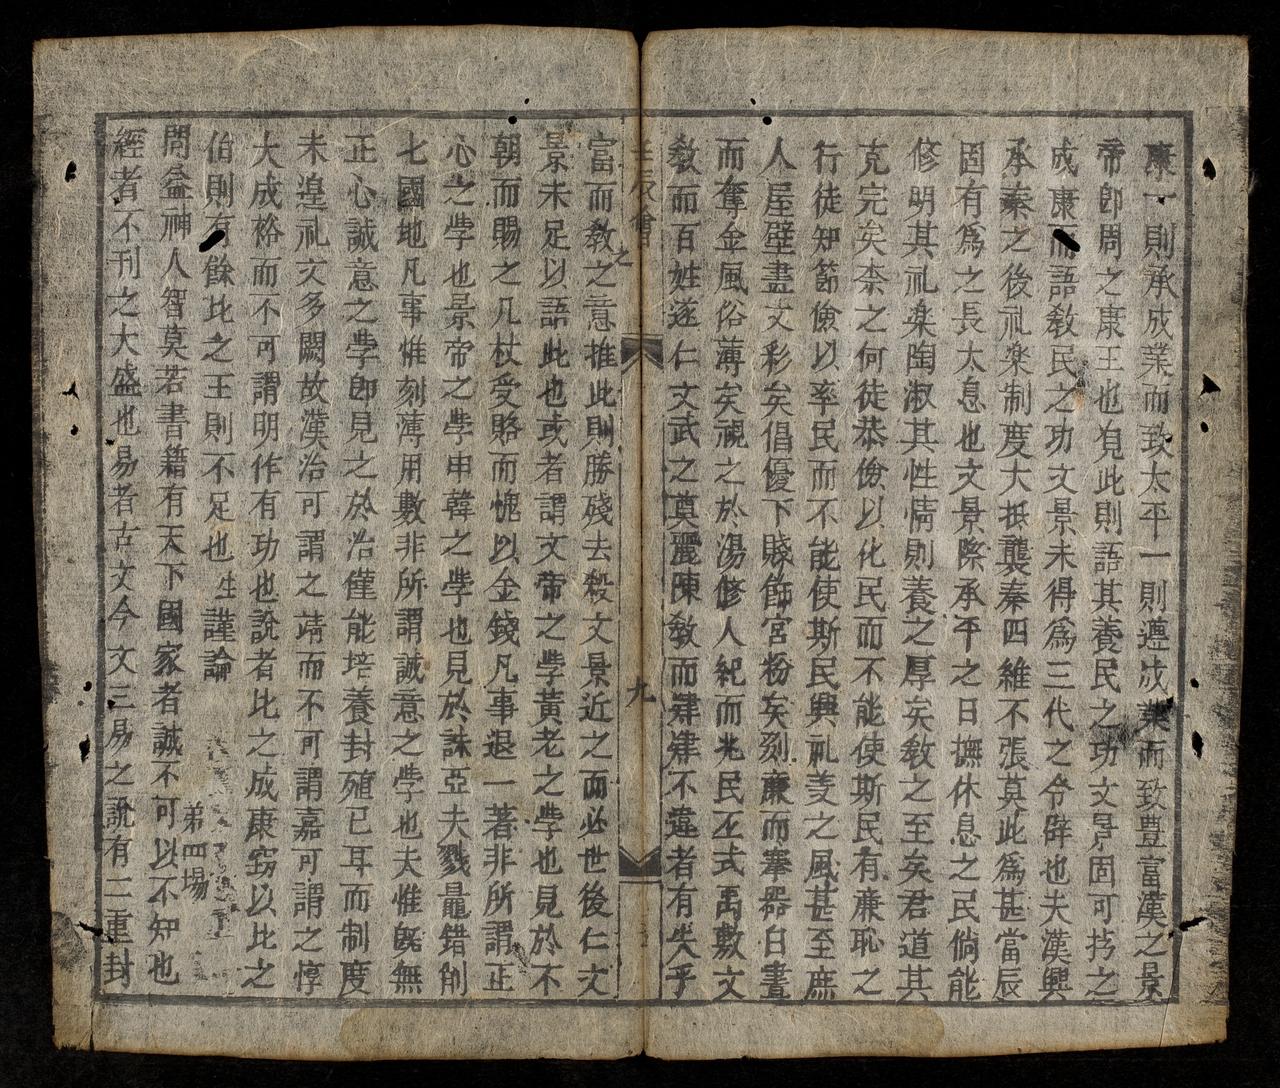 康一則承成業而致太平一則遵成業而致豊富漢之景
帝卽周之康王也自此則語其養民之功文景固可抍之
成康而語敎民之功文景未得爲三代之令辟也夫漢興
承秦之後礼楽制度大抵襲秦四維不張莫此爲甚當辰
固有爲之長太息也文景際承平之日撫休息之民倘能
修明其礼楽陶淑其性情則養之厚矣敎之至矣君道其
克完矣柰之何徒恭儉以化民而不能使斯民有廉恥之
行徒知節儉以率民而不能使斯民興礼㕵之風甚至庶
人屋壁盡文彩矣倡優下賤飾宮粉矣刻廉而搴器白晝
而奪金風俗薄矣視之於湯修人紀而兆民正式禹敷文
敎而百姓遂仁文武之奠麗陳敎而肄肄不違者有失乎
壬辰會 九
富而敎之之意推此則勝殘去殺文景近之而必世後仁文
景未足以語此也或者謂文帝之斈黃老之斈也見於不
朝而賜之几杖受賂而愧以金錢凡事退一著非所謂正
心之斈也景帝之斈申韓之斈也見於誅亞夫戮鼂錯削
七國地凡事惟刻薄用數非所謂誠意之斈也夫惟旣無
正心誠意之斈卽見之於治僅能培養封殖已耳而制度
未遑礼文多闕故漢治可謂之靖而不可謂嘉可謂之惇
大成裕而不可謂明作有功也說者比之成康窃以比之
伯則有餘比之王則不足也 生謹論
弟四場
問益神人智莫若書籍有天下國家者誠不可以不知也
經者不刊之大盛也易者古文今文三易之說有二重封